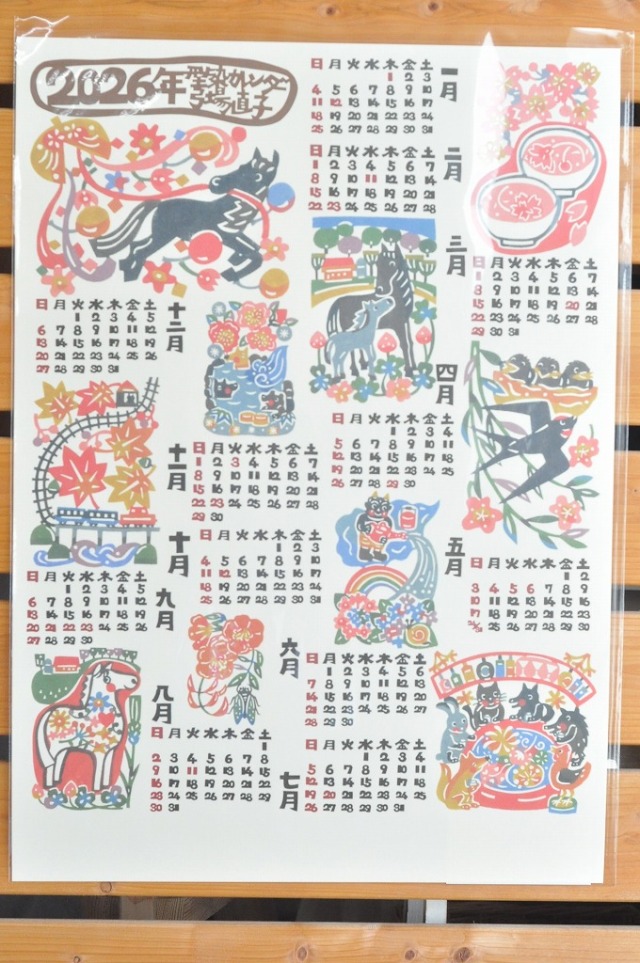 2026年
カレンダー
一月
日 月 火 水 木 金 土
1 2 3
4 5 6 7 8 9 10
11 12 13 14 15 16 17
18 19 20 21 22 23 24
25 26 27 28 29 30 31
二月
日 月 火 水 木 金 土
1 2 3 4 5 6 7
8 9 10 11 12 13 14
15 16 17 18 19 20 21
22 23 24 25 26 27 28
三月
日 月 火 水 木 金 土
1 2 3 4 5 6 7
8 9 10 11 12 13 14
15 16 17 18 19 20 21
22 23 24 25 26 27 28
29 30 31
四月
日 月 火 水 木 金 土
1 2 3 4
5 6 7 8 9 10 11
12 13 14 15 16 17 18
19 20 21 22 23 24 25
26 27 28 29 30
五月
日 月 火 水 木 金 土
1 2
3 4 5 6 7 8 9
10 11 12 13 14 15 16
17 18 19 20 21 22 23
24/31 25 26 27 28 29 30
六月
日 月 火 水 木 金 土
1 2 3 4 5 6
7 8 9 10 11 12 13
14 15 16 17 18 19 20
21 22 23 24 25 26 27
28 29 30
七月
日 月 火 水 木 金 土
1 2 3 4
5 6 7 8 9 10 11
12 13 14 15 16 17 18
19 20 21 22 23 24 25
26 27 28 29 30 31
八月
日 月 火 水 木 金 土
1
2 3 4 5 6 7 8
9 10 11 12 13 14 15
16 17 18 19 20 21 22
23 24 25 26 27 28 29
30 31
九月
日 月 火 水 木 金 土
1 2 3 4 5
6 7 8 9 10 11 12
13 14 15 16 17 18 19
20 21 22 23 24 25 26
27 28 29 30
十月
日 月 火 水 木 金 土
1 2 3
4 5 6 7 8 9 10
11 12 13 14 15 16 17
18 19 20 21 22 23 24
25 26 27 28 29 30 31
十一月
日 月 火 水 木 金 土
1 2 3 4 5 6 7
8 9 10 11 12 13 14
15 16 17 18 19 20 21
22 23 24 25 26 27 28
29 30
十二月
日 月 火 水 木 金 土
1 2 3 4 5
6 7 8 9 10 11 12
13 14 15 16 17 18 19
20 21 22 23 24 25 26
27 28 29 30 31